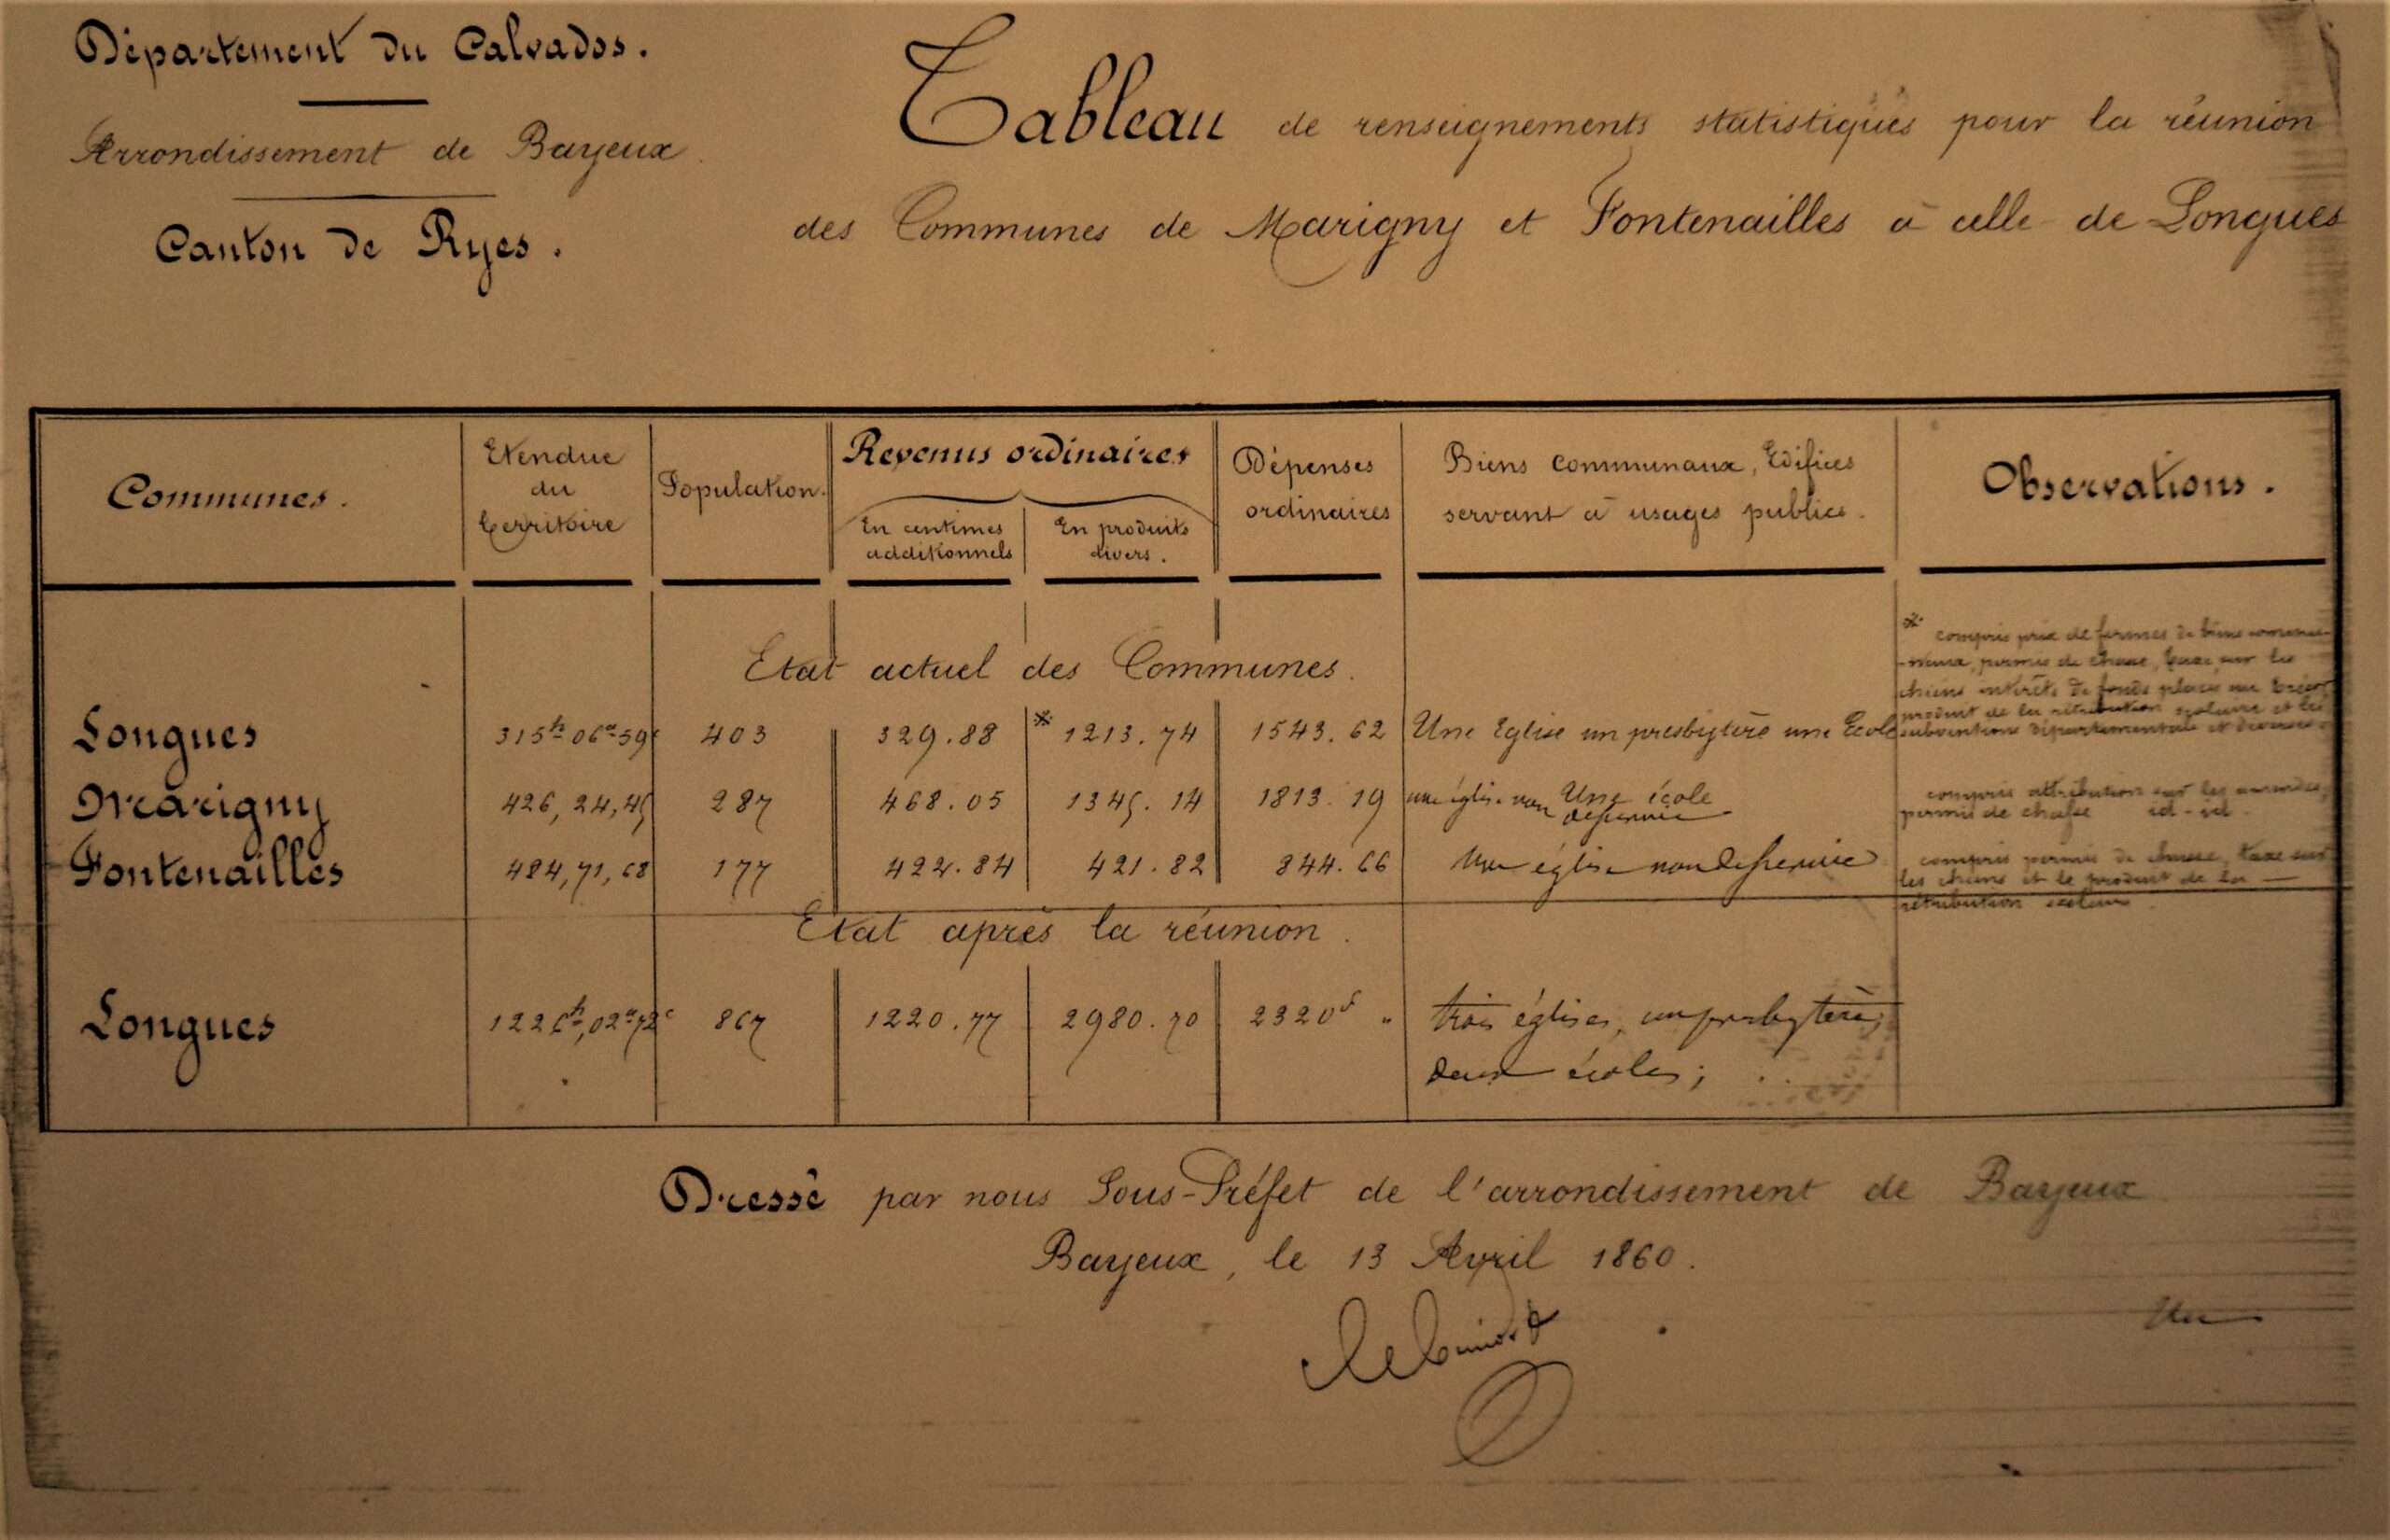 Département du Calvados.
Arrondissement de Bayeux.
Canton de Ryes.
Tableau de renseignements statistiques pour la réunion
des Communes de Marigny et Fontenailles à celle de Longues
Communes.
Etendue
du
territoire
Population.
Revenus ordinaires
En centimes
additionnels
En produits
divers.
Dépenses
ordinaires
Biens communaux, Edifices
servant à usages publics.
Observations.
Etat actuel des Communes.
Longues 315h 06a 59c 403 329.88 * 1213.74 1543.62 Une Eglise un presbytère une Ecole
* compris prix de fermes de biens commu-
-naux, permis de chasse, taxe sur les
chiens intérêts de fonds placés au trésor,
produit de la rétribution scolaire et les
subventions départementale et diverses.
Marigny 426, 24, 45 287 468.05 1345.14 1813.19 une église non Une école
desservie
compris attribution sur les amendes,
permis de chasse id - id.
Fontenailles 484, 71, 68 177 422.84 421.82 844.66 Une église non desservie
compris permis de chasse, taxe sur
les chiens et le produit de la
rétribution scolaire
Etat après la réunion.
Longues 1226h, 02a 72c 867 1220.77 2980.70 2320f " trois églises, un presbytère,
deux écoles;
Dressé par nous Sous-Préfet de l'arrondissement de Bayeux
Bayeux, le 13 Avril 1860.